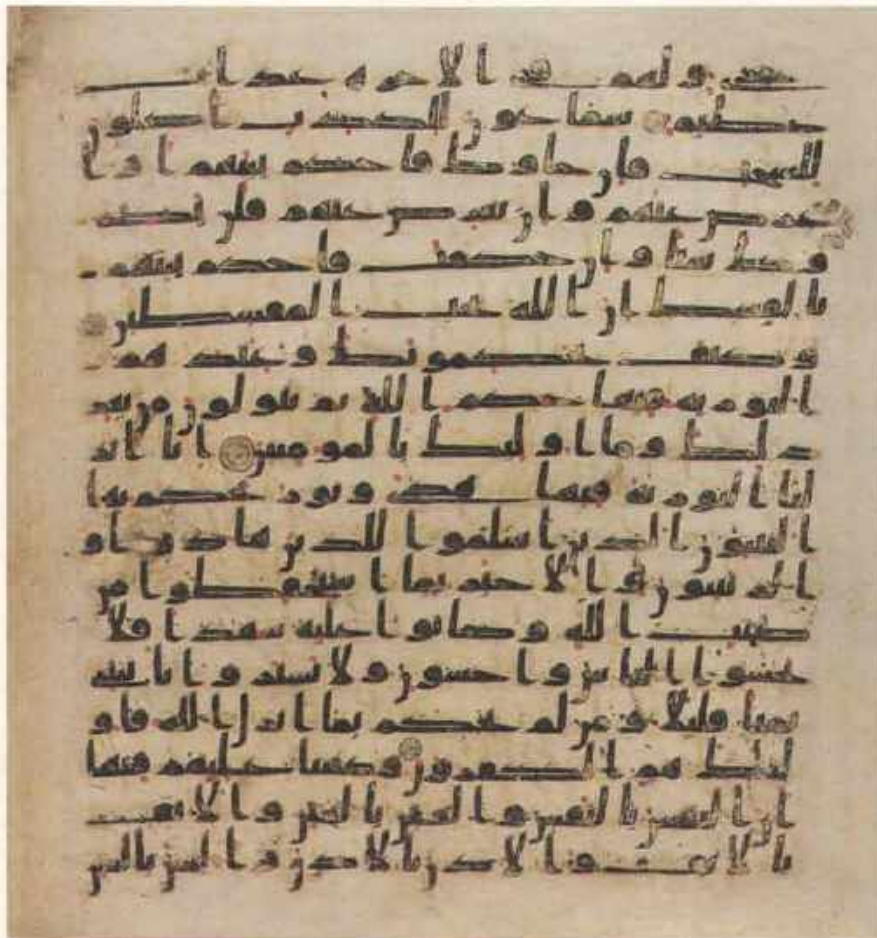 خزي ولهم في الاخرة عذاب
عظيم سمعون للكذب اكلون
للسحت فان جاوك فاحكم بينهم او ا
عرض عنهم وان تعرض عنهم فلن يضر
وك شيا وان حكمت فاحكم بينهم
بالقسط ان الله يحب المقسطين
وكيف يحكمونك وعندهم
التورية فيها حكم الله ثم يتولون من بعد
ذلك وما اوليك بالمومنين انا انز
لنا التورية فيها هدى ونور يحكم بها
النبيون الذين اسلموا للذين هادوا و
الربنيون والاحبار بما استحفظوا من
كتب الله وكانوا عليه شهدا فلا
تخشوا الناس واخشون ولا تشتروا بايتي
ثمنا قليلا ومن لم يحكم بما انزل الله فاو
ليك هم الكفرون وكتبنا عليهم فيها
ان النفس بالنفس والعين بالعين والانف
بالانف والاذن بالاذن والسن بالسن